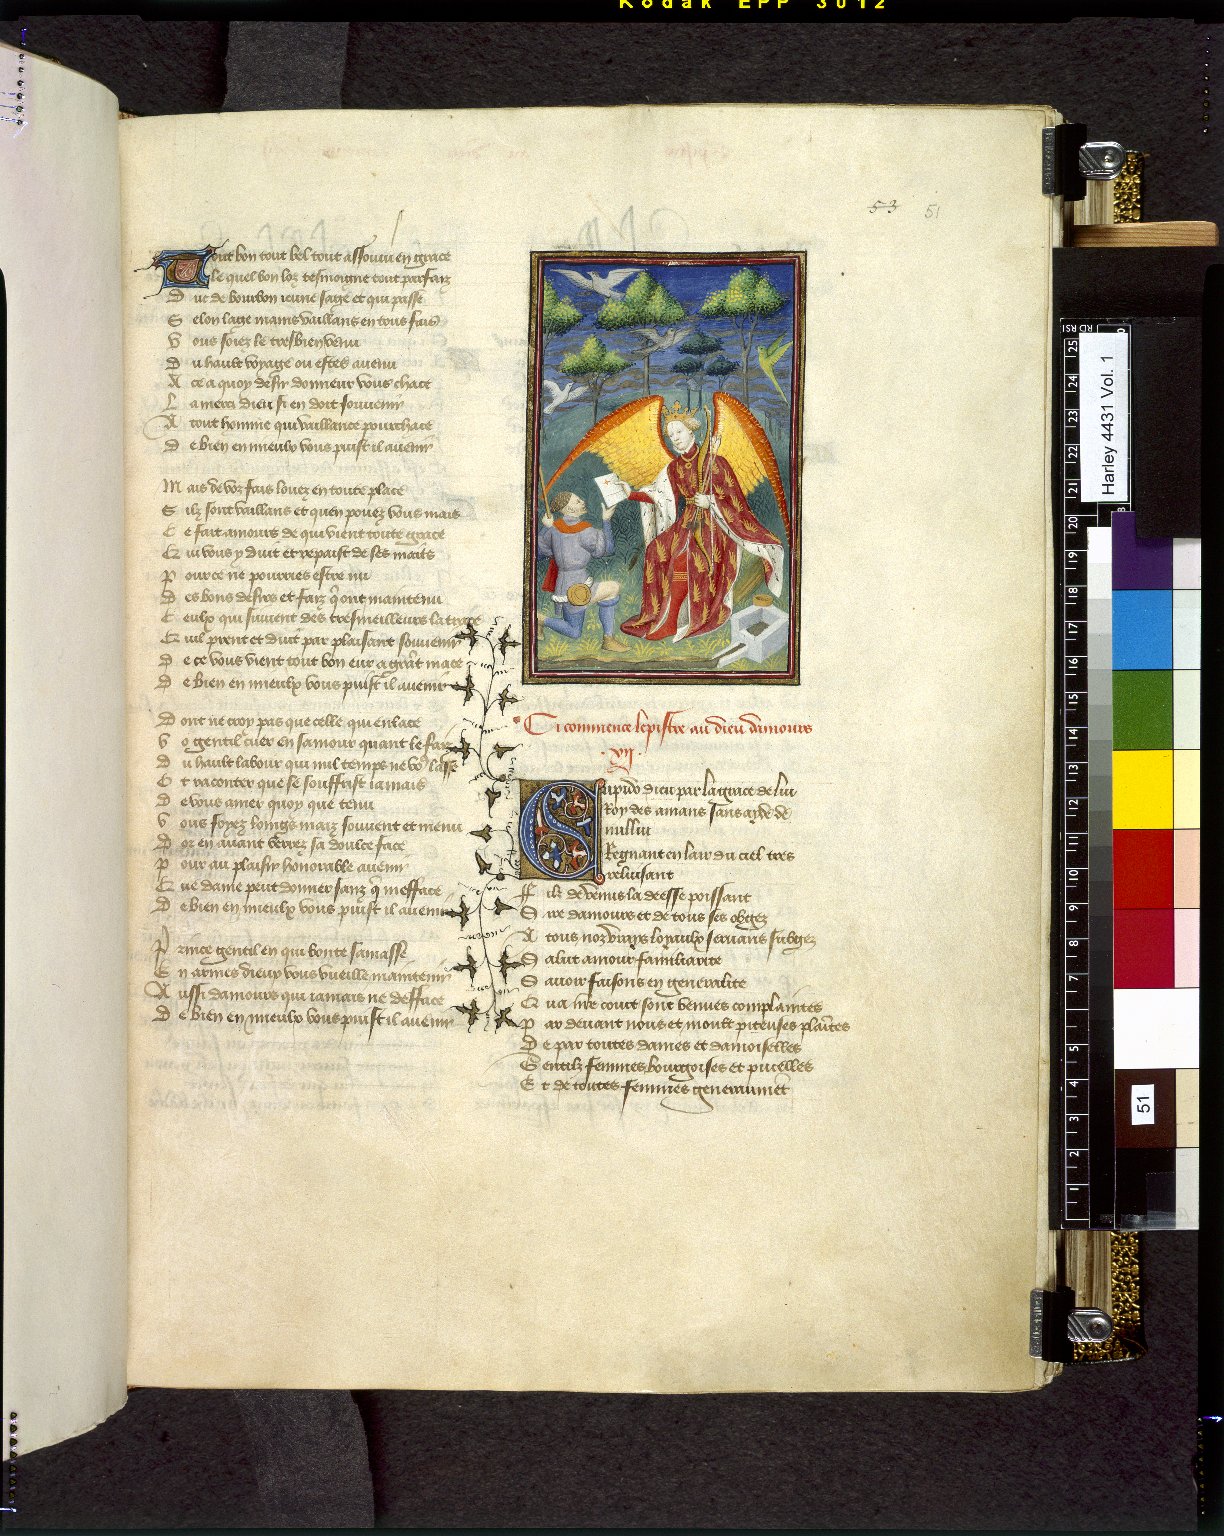 Kodak EPP 3012
53 51
Tout bon tout bel tout assouui en grace
Le quel bon loz tesmoigne tout parfaiz
Duc de bourbon ieune sage et qui passe
Selon laage mains vaillans en tous fais
Vous soiez le tresbien venu
Du hault voyage ou estes auenu
A ce a quoy desir donneur vous chace
La merci dieu si en doit souuenir
A tout homme qui vaillance pourchace
De bien en mieulx vous puist il auenir
Mais de voz fais louez en toute place
Silz sont vaillans et quen pouez vous mais
Ce fait amours de qui vient toute grace
Qui vous y duit et repaist de ses mais
Pource ne pourries estre nu
Des bons desirs et faiz q̃ ont maintenu
Ceulx qui suiuent des tresmeilleurs la trace
Quil prent et duit par plaisant souuenir
De ce vous vient tout bon eur a grãt mace
De bien en mieulx vous puist il auenir
Dont ne croy pas que celle qui enlace
Vo gentil cuer en samour quant le faiz
Du hault labour qui nul temps ne voꝰ lasse
Et raconter que se souffrist iamais
De vous amer quoy que tenu
Vous soyez loings maiz souuent et menu
Dor en auant verrez sa doulce face
Pour au plaisir honorable auenir
Que dame peut donner sanz q̃ mefface
De bien en mieulx vous puist il auenir
Prince gentil en qui bonte samasse
En armes dieux vous vueille maintenir
Aussi damours qui iamais ne defface
De bien en mieulx vous puist il auenir
Ci commence lepistre au dieu damours
.vij.
Cupido dieu par la grace de lui
Roy des amans sans ayde de
nullui
Regnant en lair du ciel tres
reluisant
Filz de venus la deesse poissant
Sire damours et de tous ses obgez
A tous noz vrays loyaulx seruans subgez
Salut amour familiarite
Sauoir faisons en generalite
Qua nr̃e court sont venues complaintes
Par deuant nous et moult piteuses plaĩtes
De par toutes dames et damoiselles
Gentilz femmes bourgoises et pucelles
Et de toutes femmes generaumẽt
Harley 4431 Vol. 1
51
25
24
23
22
21
20
19
18
17
16
15
14
13
12
11
10
9
8
7
6
5
4
3
2
1